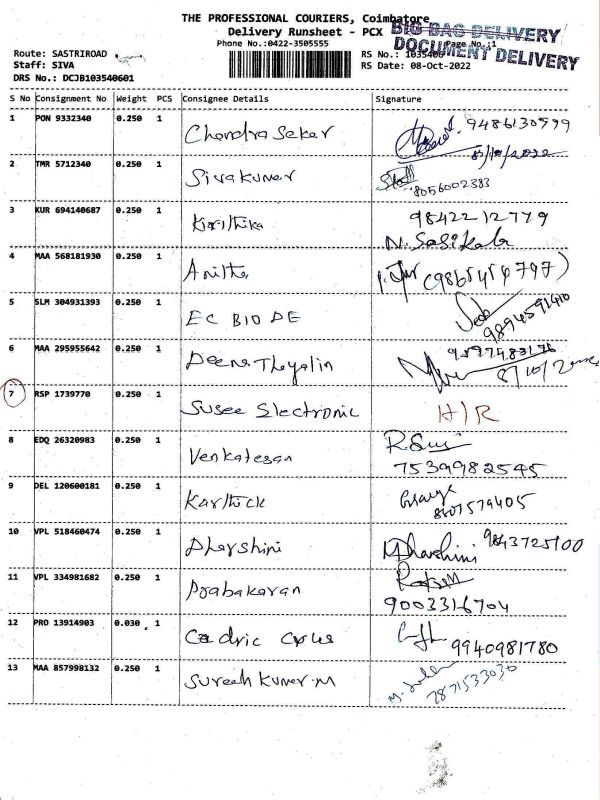 THE PROFESSIONAL COURIERS, Coimbatore
Delivery Runsheet - PCX
BIG BAG DELIVERY
Phone No.:0422-3505555
Page No.:1
DOCUMENT DELIVERY
Route: SASTRIROAD
RS No.: 1035406
Staff: SIVA
RS Date: 08-Oct-2022
DRS No.: DCJB103540601
S No Consignment No Weight PCS Consignee Details Signature
1 PON 9332340 0.250 1 Chandra Sekar 9486130599
8/10/2022
2 TMR 5712340 0.250 1 Sivakumar
8056002383
3 KUR 694140687 0.250 1 Kirithika 9842212779
N. Sasikala
4 MAA 568181930 0.250 1 Anitha
5 SLM 304931393 0.250 1 EC BIO DE
9894591410
6 MAA 295955642 0.250 1
8/10/2022
7 RSP 1739770 0.250 1 Susee Electronic H/R
8 EDQ 26320983 0.250 1 Venkatesan
7539982545
9 DEL 120600181 0.250 1 Karthick
8607579405
10 VPL 518460474 0.250 1 Dharshini M Dharshini 9843725100
11 VPL 334981682 0.250 1 Prabakaran
9003316704
12 PRO 13914903 0.030 1 Cedric 9940981780
13 MAA 857998132 0.250 1 Suresh Kumar.M
7871533030